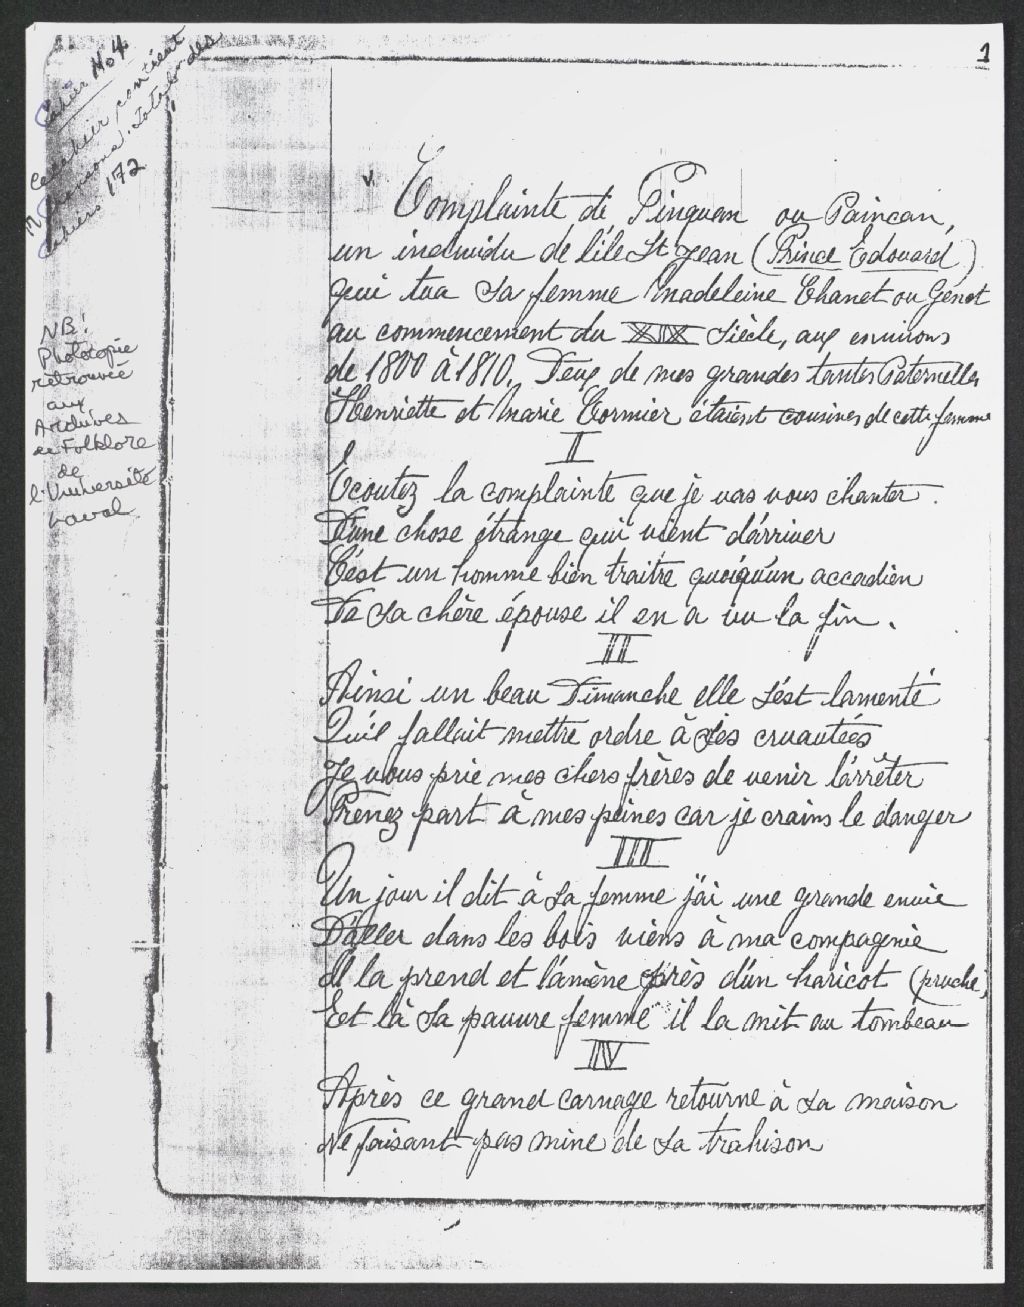 1
Cahier No 4
Ce cahier contient
chansons. Total des
Cahiers 172
NB!
Photocopie
retrouvée
aux
Archives
de Folklore
de
l'Université
Laval
Complainte de Pinquan ou Paincan,
un individu de l'ile St Jean (Prince Edouard)
qui tua sa femme Madeleine Chanet ou Genot
au commencement du XIX Siècle, aux environs
de 1800 à 1810. Deux de mes grandes tantes Paternelles
Henriette et Marie Cormier étaient cousines de cette femme
I
Ecoutez la complainte que je vas vous chanter.
D'une chose étrange qui vient d'arriver
C'est un homme bien traitre quoiqu'un accadien
De sa chère épouse il en a vu la fin.
II
Ainsi un beau Dimanche elle s'est lamenté
Qu'il fallait mettre ordre à ses cruautées
Je vous prie mes chers frères de venir l'arrêter
Prenez part à mes peines car je crains le danger
III
Un jour il dit à sa femme j'ai une grande envie
D'aller dans les bois viens à ma compagnie
Il la prend et l'amène près d'un haricot (pruche)
Et là sa pauvre femme il la mit au tombeau
IV
Après ce grand carnage retourne à sa maison
Ne faisant pas mine de sa trahison